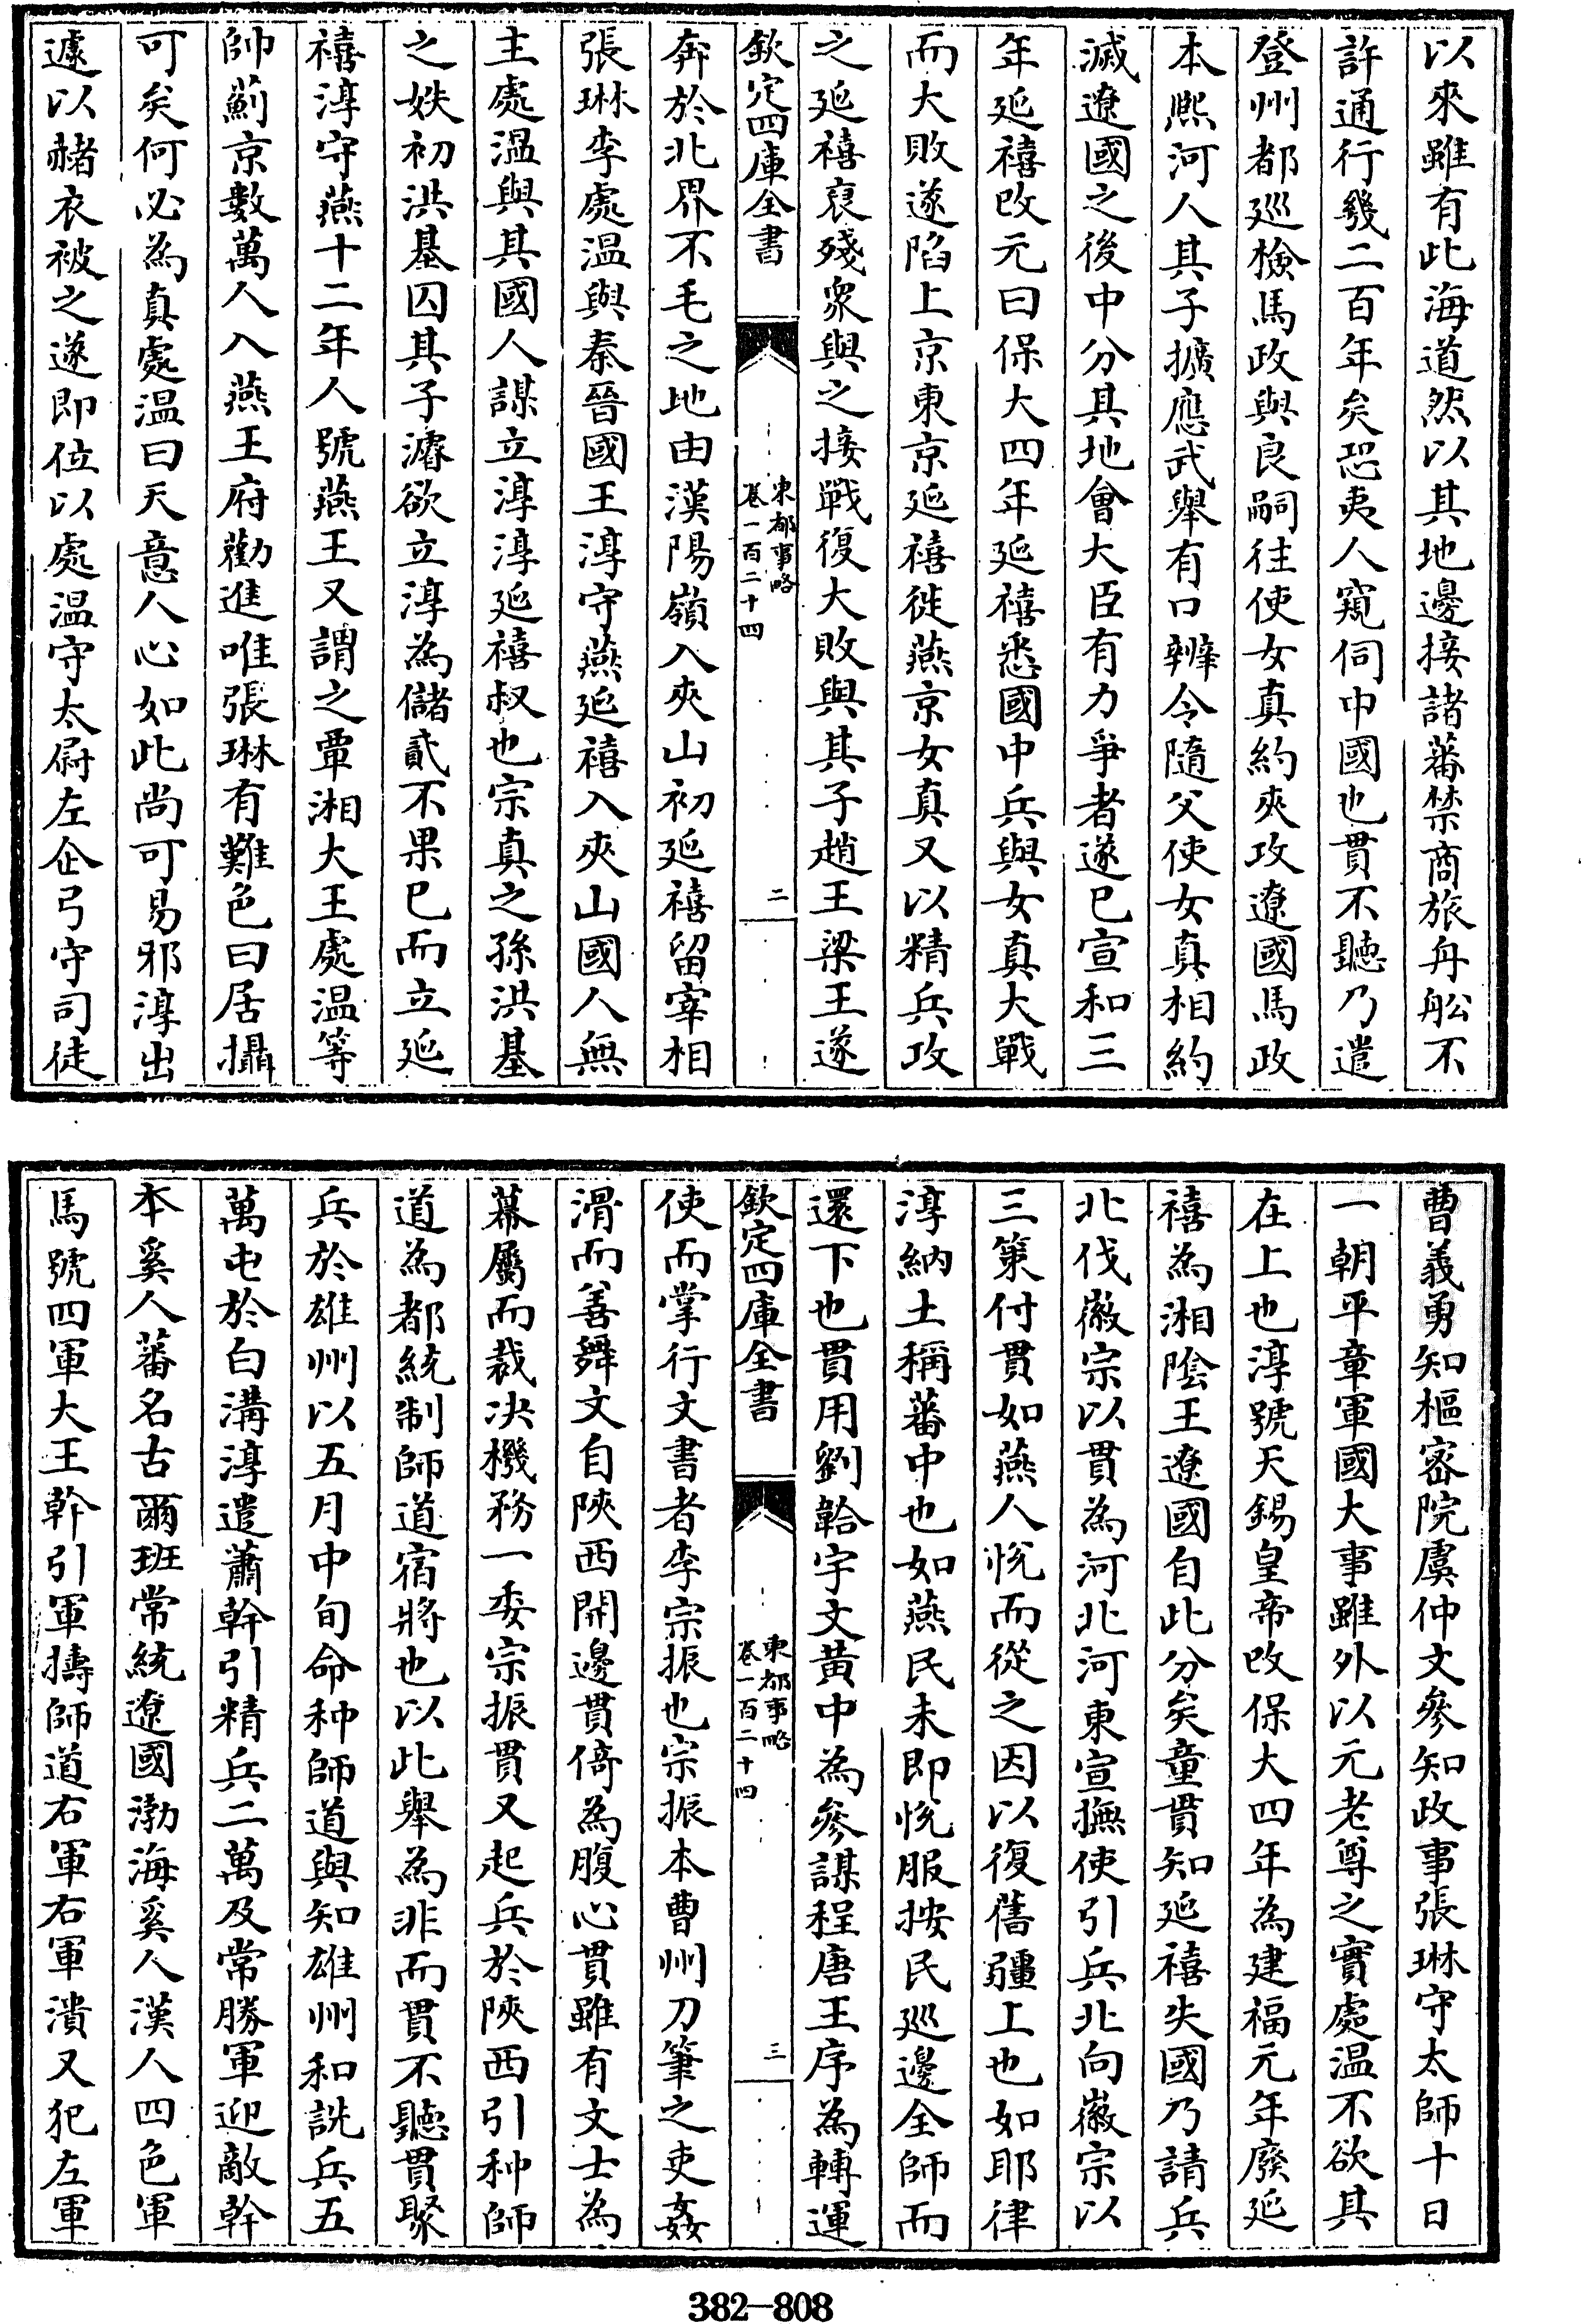 以來雖有此海道然以其地邊接諸蕃禁商旅舟舩不
許通行幾二百年矣恐夷人窺伺中國也貫不聽乃遣
登州都巡檢馬政與良嗣往使女真約夾攻遼國馬政
本熈河人其子擴應武舉有口辨令隨父使女真相約
滅遼國之後中分其地會大臣有力爭者遂已宣和三
年延禧改元曰保大四年延禧悉國中兵與女真大戰
而大敗遂陷上京東京延禧徙燕京女真又以精兵攻
之延禧裒殘衆與之接戰復大敗與其子趙王梁王遂
欽定四庫全書
東都事略
卷一百二十四
二
奔於北界不毛之地由漢陽嶺入夾山初延禧留宰相
張琳李處温與秦晉國王淳守燕延禧入夾山國人無
主處温與其國人謀立淳淳延禧叔也宗真之孫洪基
之姪初洪基囚其子濬欲立淳為儲貳不果已而立延
禧淳守燕十二年人號燕王又謂之覃湘大王處温等
帥薊京數萬人入燕王府勸進唯張琳有難色曰居攝
可矣何必為真處温曰天意人心如此尚可易邪淳出
遽以赭衣被之遂即位以處温守太尉左企弓守司徒
曹義勇知樞密院虞仲文參知政事張琳守太師十日
一朝平章軍國大事雖外以元老尊之實處温不欲其
在上也淳號天錫皇帝改保大四年為建福元年廢延
禧為湘陰王遼國自此分矣童貫知延禧失國乃請兵
北伐徽宗以貫為河北河東宣撫使引兵北向徽宗以
三策付貫如燕人悅而從之因以復舊疆上也如耶律
淳納土稱蕃中也如燕民未即悅服按民巡邊全師而
還下也貫用劉韐宇文黃中為參謀程唐王序為轉運
欽定四庫全書
東都事略
卷一百二十四
三
使而掌行文書者李宗振也宗振本曹州刀筆之吏姦
滑而善舞文自陝西開邊貫倚為腹心貫雖有文士為
幕屬而裁决機務一委宗振貫又起兵於陝西引种師
道為都統制師道宿將也以此舉為非而貫不聽貫聚
兵於雄州以五月中旬命种師道與知雄州和詵兵五
萬屯於白溝淳遣蕭幹引精兵二萬及常勝軍迎敵幹
本奚人蕃名古爾班常統遼國渤海奚人漢人四色軍
馬號四軍大王幹引軍擣師道右軍右軍潰又犯左軍
382—808